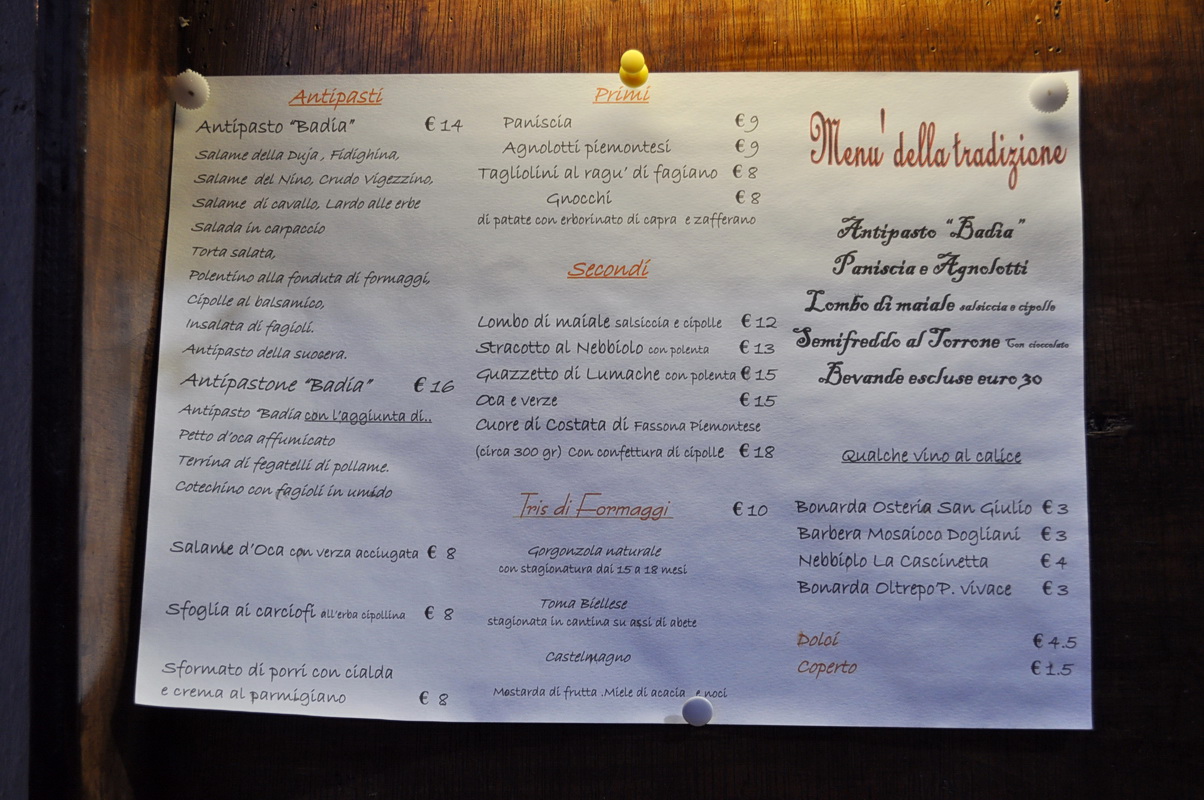 Antipasti
Antipasto "Badia" € 14
Salame della Duja, Fidighina,
Salame del Nino, Crudo Vigezzino,
Salame di cavallo, Lardo alle erbe
Salada in carpaccio
Torta salata,
Polentino alla fonduta di formaggi,
Cipolle al balsamico,
Insalata di fagioli.
Antipasto della suocera.
Antipastone "Badia" € 16
Antipasto "Badia con l'aggiunta di..
Petto d'oca affumicato
Terrina di fegatelli di pollame.
Cotechino con fagioli in umido
Salame d'Oca con verza acciugata € 8
Sfoglia ai carciofi all'erba cipollina € 8
Sformato di porri con cialda
e crema al parmigiano € 8
Primi
Paniscia € 9
Agnolotti piemontesi € 9
Tagliolini al ragu' di fagiano € 8
Gnocchi € 8
di patate con erborinato di capra e zafferano
Secondi
Lombo di maiale salsiccia e cipolle € 12
Stracotto al Nebbiolo con polenta € 13
Guazzetto di Lumache con polenta € 15
Oca e verze € 15
Cuore di Costata di Fassona Piemontese
(circa 300 gr) Con confettura di cipolle € 18
Tris di Formaggi € 10
Gorgonzola naturale
con stagionatura dai 15 a 18 mesi
Toma Biellese
stagionata in cantina su assi di abete
Castelmagno
Mostarda di frutta .Miele di acacia e noci
Menu' della tradizione
Antipasto "Badia"
Paniscia e Agnolotti
Lombo di maiale salsiccia e cipolle
Semifreddo al Torrone Con cioccolato
Bevande escluse euro 30
Qualche vino al calice
Bonarda Osteria San Giulio € 3
Barbera Mosaioco Dogliani € 3
Nebbiolo La Cascinetta € 4
Bonarda Oltrepo'P. vivace € 3
Dolci € 4.5
Coperto € 1.5